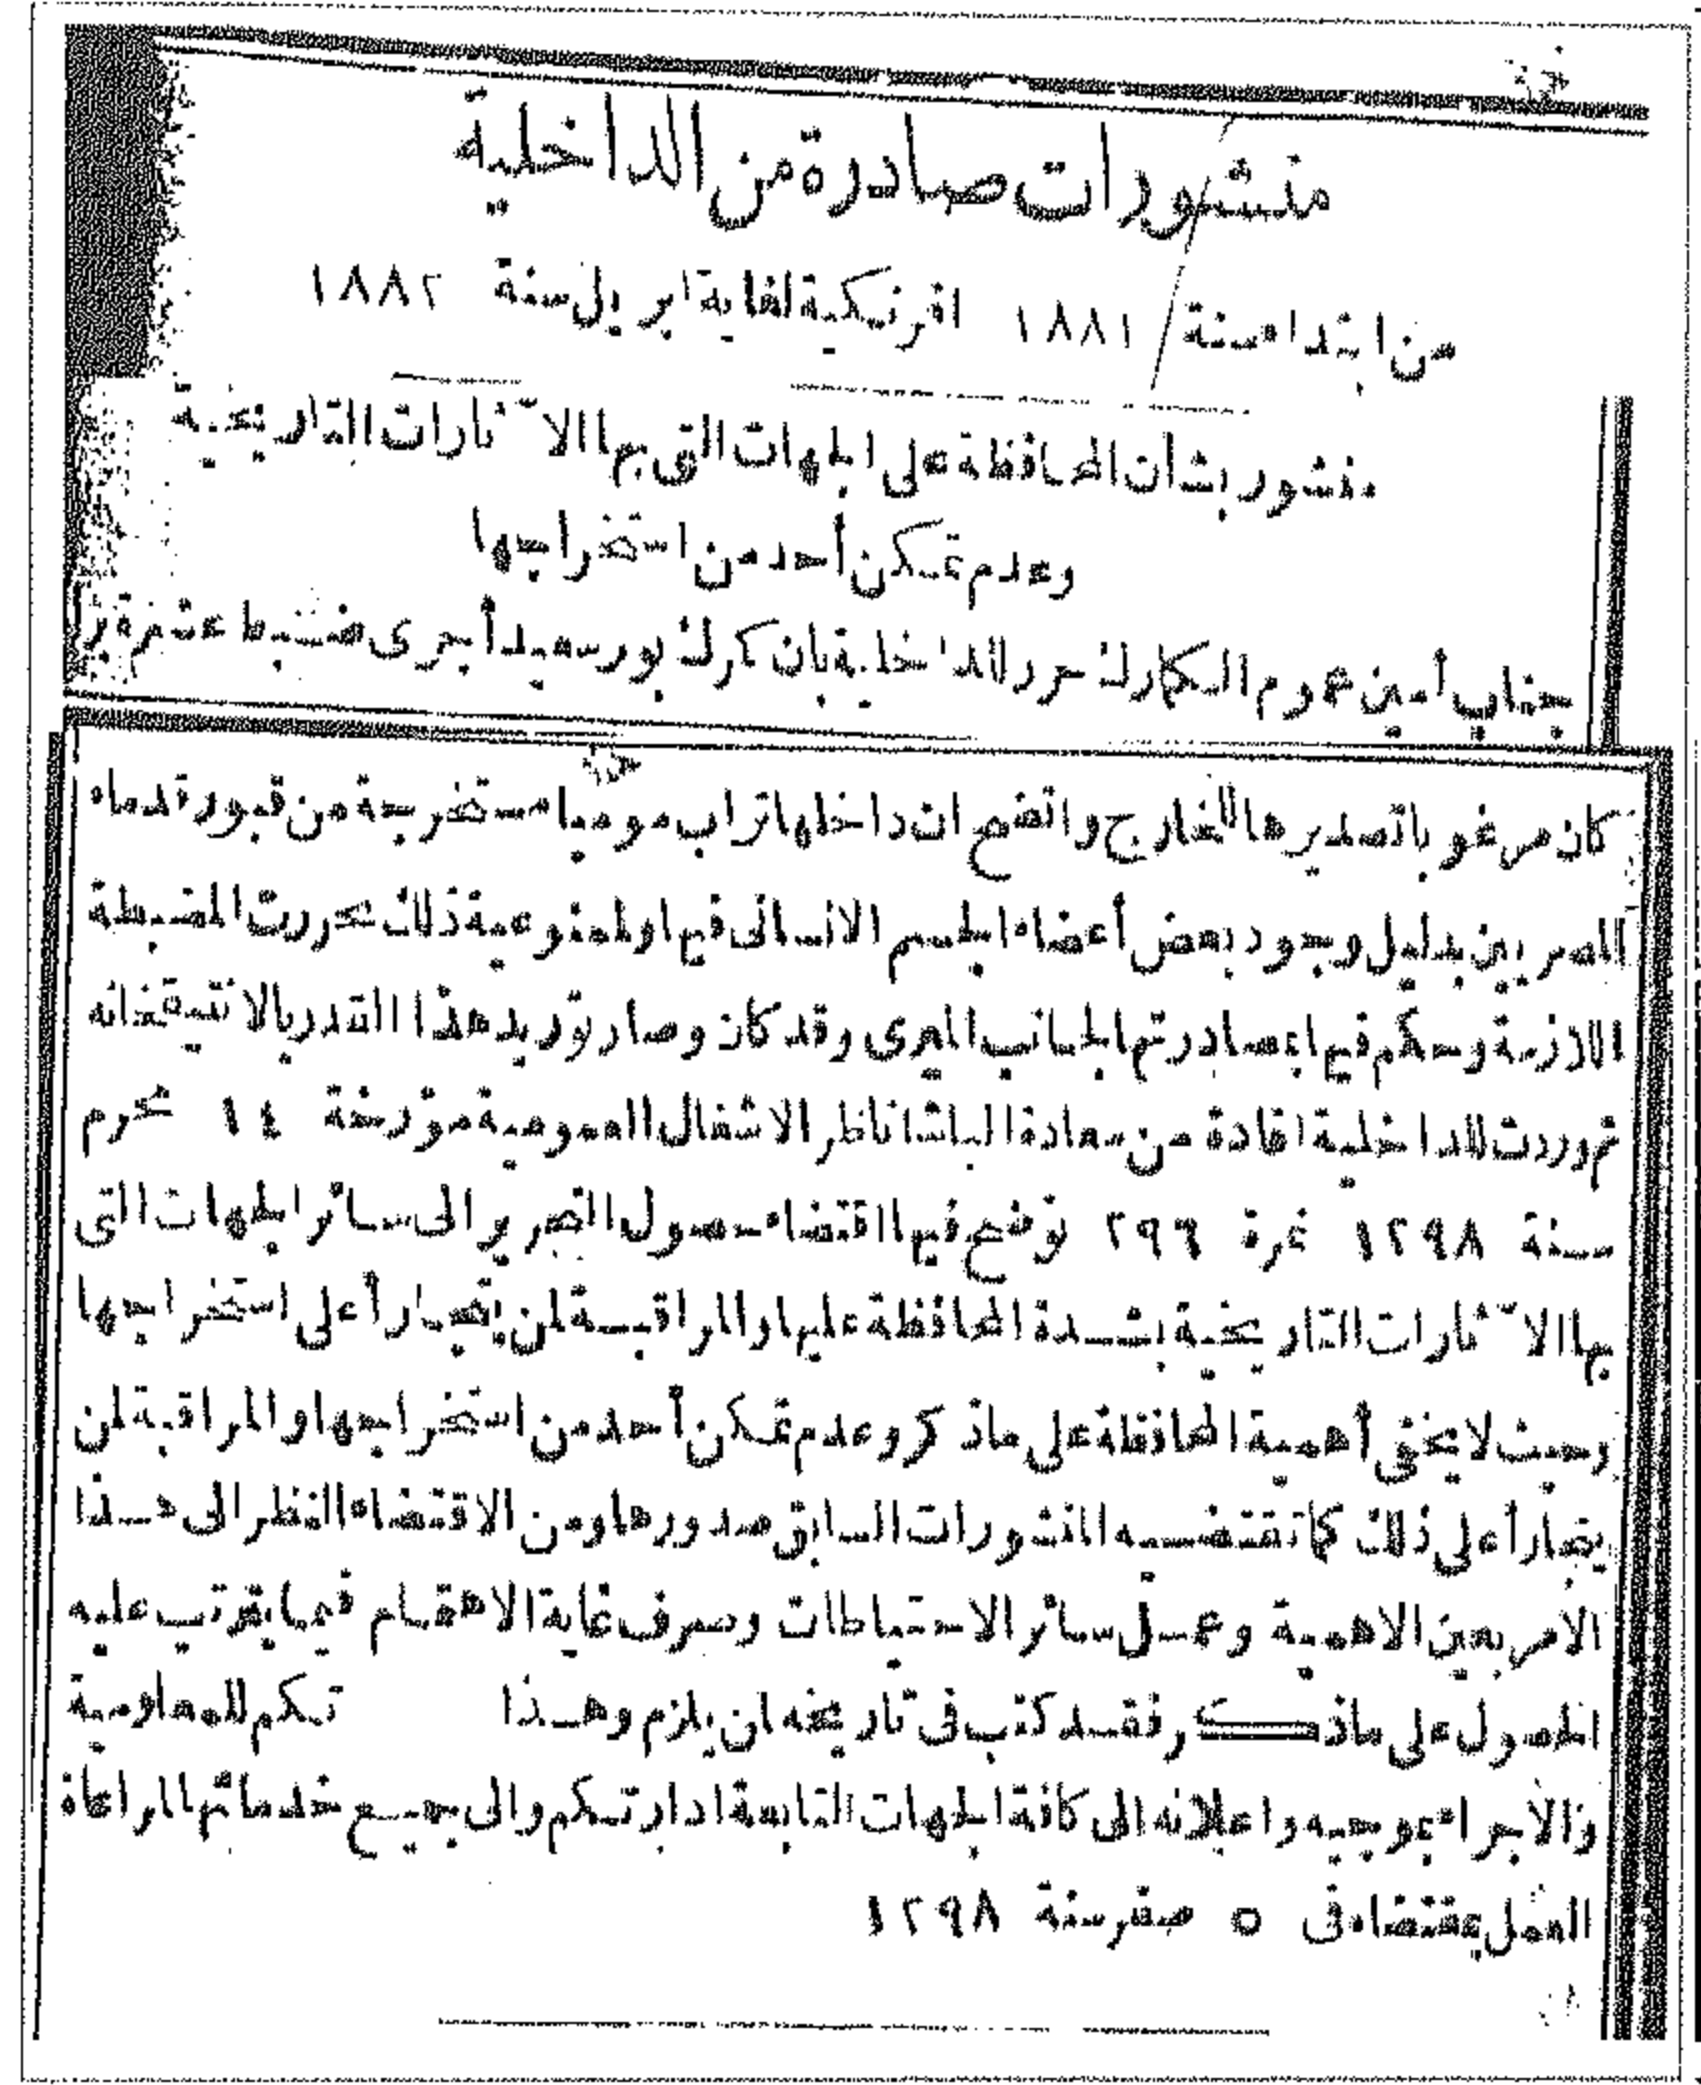 منشورات صادرة من الداخلية
من ابتداء سنة ١٨٨١ افرنكية لغاية ابريل سنة ١٨٨٢
منشور بشان المحافظة على الجهات التى بها الآثارات التاريخية
وعدم تمكن أحد من استخراجها
جناب أمين عموم الكمارك حرر للداخلية بان كمرك بورسعيد أجرى ضبط عشرة
كان مرغوبا تصديرها للخارج واتضح ان داخلها تراب موميا مستخرجة من قبور قدماء
المصريين بدليل وجود بعض أعضاء الجسم الانسانى فيها ولممنوعية ذلك تحررت المضبطة
اللازمة وحكم فيها بمصادرتها لجانب الميرى وقد كان وصار توريد هذا القدر بالانتيقخانه
ثم وردت للداخلية افادة من سعادة الباشا ناظر الاشغال العمومية مؤرخة ١٤ محرم
سنة ١٢٩٨ نمرة ٢٩٦ توضح فيها اقتضاء حصول التحرير الى سائر الجهات التى
بها الآثارات التاريخية بشدة المحافظة عليها والمراقبة لمن يتجارأ على استخراجها
وحيث لا يخفى أهمية المحافظة على ماذكر وعدم تمكن أحد من استخراجها والمراقبة لمن
يتجارأ على ذلك كما تقتضيه المنشورات السابق صدورها ومن الاقتضاء النظر الى هذا
الامر بعين الاهمية وعمل سائر الاحتياطات وصرف غاية الاهتمام فيما يترتب عليه
الحصول على ماذكر فقد كتب فى تاريخه لمن يلزم وهذا تكم للمعلومية
والاجراء بموجبه واعلانه الى كافة الجهات التابعة ادارتكم والى جميع خدماتها لمراعاة
العمل بمقتضاه فى ٥ صفر سنة ١٢٩٨